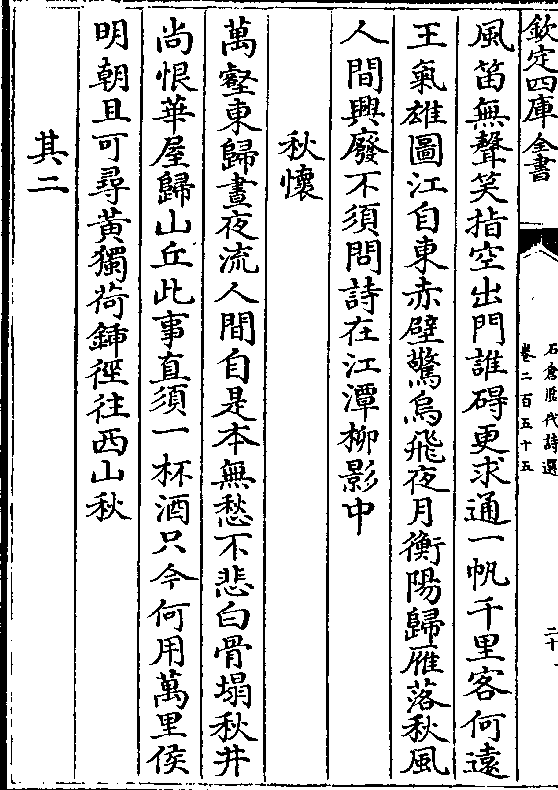 欽定四庫全書
石倉歷代詩選
卷二百五十五
二十
風笛無聲笑指空出門誰碍更求通一帆千里客何遠
王氣雄圖江自東赤壁驚烏飛夜月衡陽歸雁落秋風
人間興廢不須問詩在江潭柳影中
秋懷
萬壑東歸晝夜流人間自是本無愁不悲白骨塌秋井
尚恨華屋歸山丘此事真須一杯酒只今何用萬里侯
明朝且可尋黃獨荷鍤徑往西山秋
其二